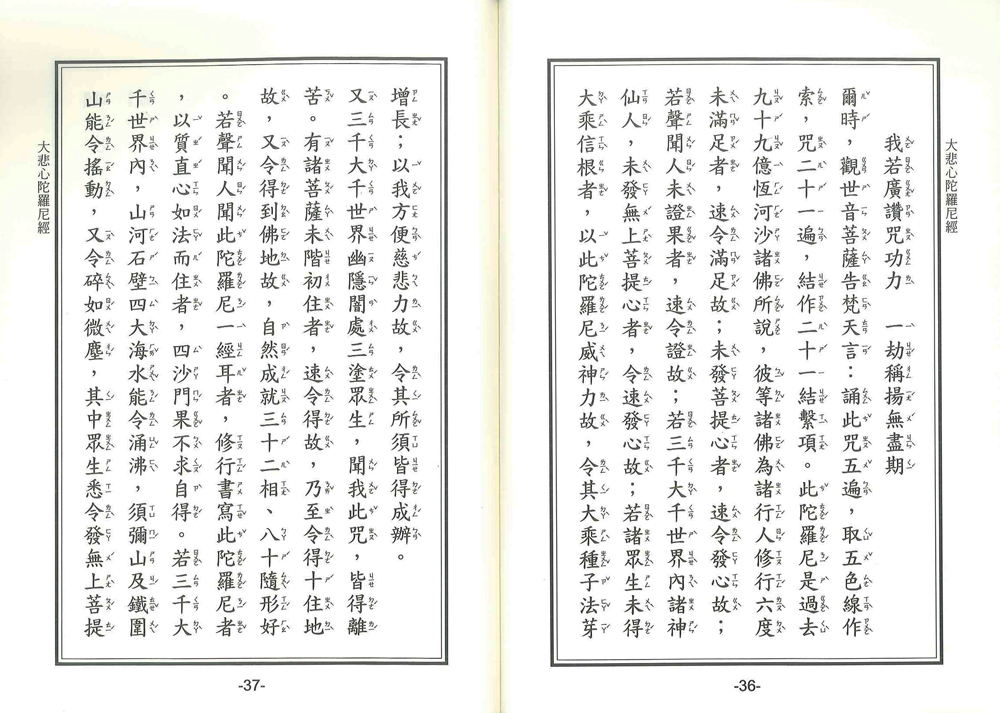 大悲心陀羅尼經
我若廣讚咒功力　一劫稱揚無盡期
爾時，觀世音菩薩告梵天言：誦此咒五遍，取五色線作
索，咒二十一遍，結作二十一結繫項。此陀羅尼是過去
九十九億恆河沙諸佛所說，彼等諸佛為諸行人修行六度
未滿足者，速令滿足故；未發菩提心者，速令發心故；
若聲聞人未證果者，速令證故；若三千大千世界內諸神
仙人，未發無上菩提心者，令速發心故；若諸眾生未得
大乘信根者，以此陀羅尼威神力故，令其大乘種子法芽
-36-
增長；以我方便慈悲力故，令其所須皆得成辦。
又三千大千世界幽隱闇處三塗眾生，聞我此咒，皆得離
苦。有諸菩薩未階初住者，速令得故，乃至令得十住地
故，又令得到佛地故，自然成就三十二相、八十隨形好
。若聲聞人聞此陀羅尼一經耳者，修行書寫此陀羅尼者
，以質直心如法而住者，四沙門果不求自得。若三千大
千世界內，山河石壁四大海水能令涌沸，須彌山及鐵圍
山能令搖動，又令碎如微塵，其中眾生悉令發無上菩提
大悲心陀羅尼經
-37-